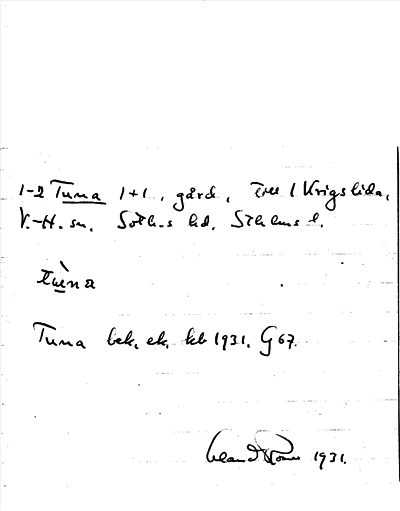 1-2 Tuna 1+1, gård, Krigslida,
V.-H. sn. Soth.s hd. Sthlms l.
tùna
Tuna bek. ek. kb 1931. G 67.
1931.